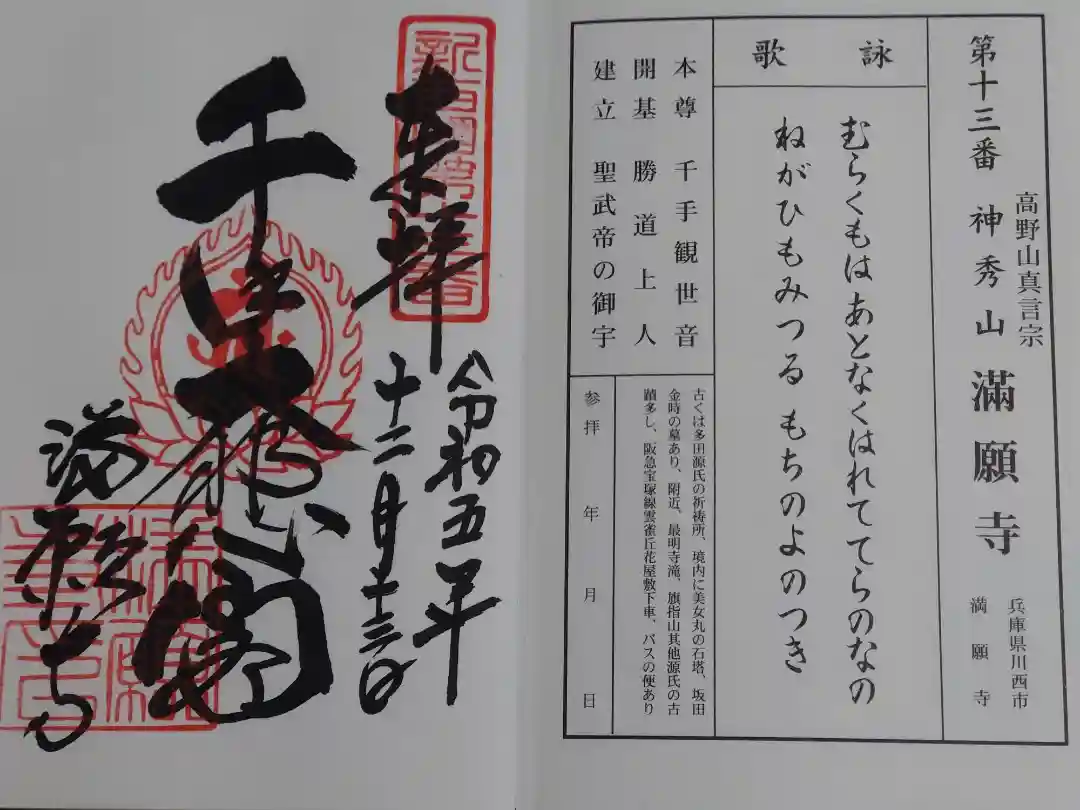 第十三番 神秀山 滿願寺
高野山真言宗
兵庫県川西市
満願寺
詠歌
むらくもは あとなくはれて てらのなの
ねがひもみつる もちのよのつき
本尊 千手観世音
開基 勝道上人
建立 聖武帝の御宇
古くは多田源氏の祈祷所、境内に美女丸の石塔、坂田
金時の墓あり、附近、最明寺滝、旗指山其他源氏の古
蹟多し、阪急宝塚線雲雀丘花屋敷下車、バスの便あり
参拝 年 月 日
奉拝
令和五年
十二月十三日
千手大悲閣
満願寺